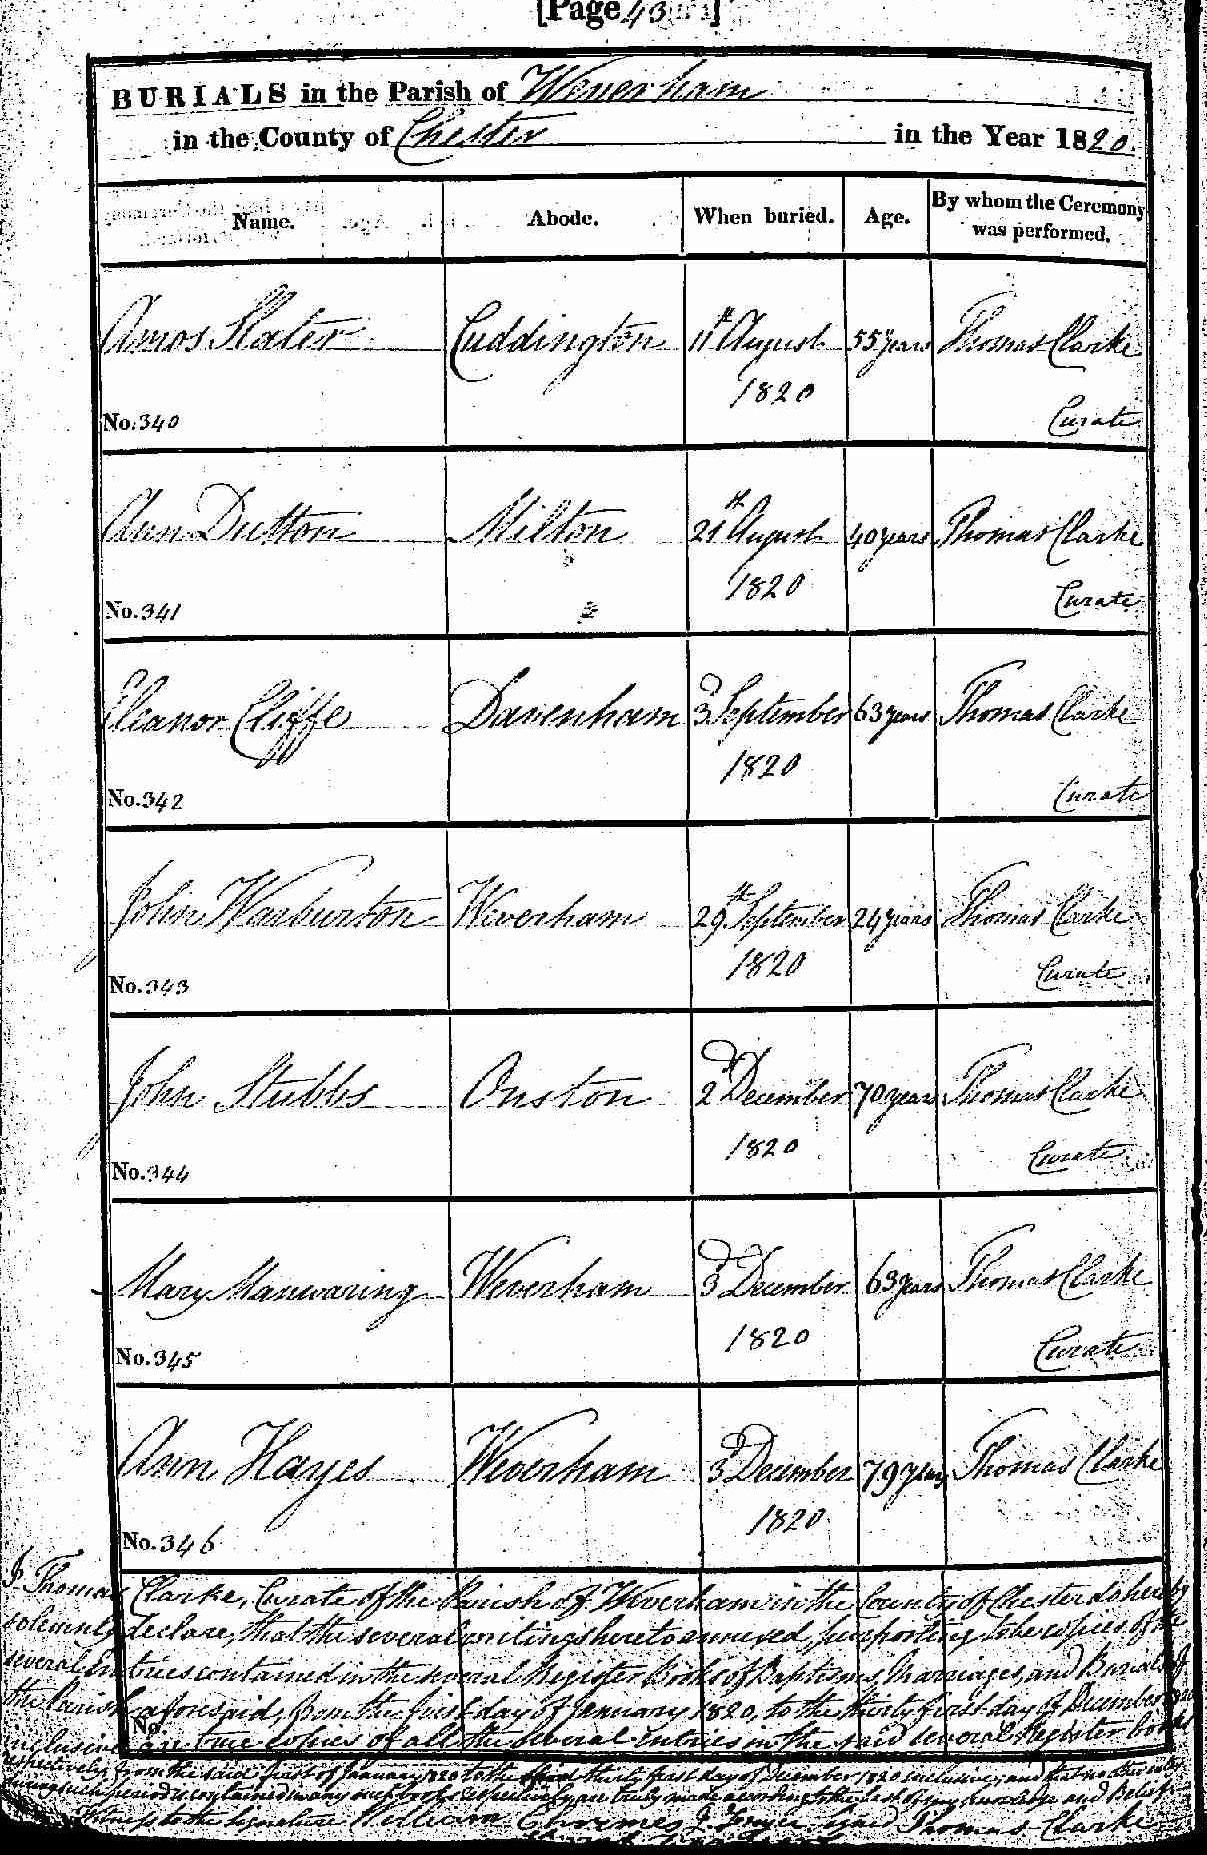 [Page 43]
BURIALS in the Parish of Weverham
in the County of Chester in the Year 1820.
Name. Abode. When buried. Age. By whom the Ceremony was performed.
Amos Slater Cuddington 11th August 55 years Thomas Clarke
1820
No. 340 Curate
Ann Dutton Milton 21st August 40 years Thomas Clarke
1820
No. 341 Curate
Eleanor Cliffe Davenham 3d September 63 years Thomas Clarke
1820
No. 342 Curate
John Warburton Weverham 29th September 24 years Thomas Clarke
1820
No. 343 Curate
John Stubbs Onston 2d December 70 years Thomas Clarke
1820
No. 344 Curate
Mary Manwaring Weverham 3d December 63 years Thomas Clarke
1820
No. 345 Curate
Ann Hayes Weverham 3d December 79 years Thomas Clarke
1820
No. 346
I, Thomas Clarke, Curate of the Parish of Weverham in the County of Chester do hereby
solemnly declare, that the several writings hereto annexed, purporting to be copies of the
several Entries contained in the several Register Books of Baptisms, Marriages, and Burials of
the Parish aforesaid, from the first day of January 1820, to the thirty first day of December
No.
inclusive are true copies of all the several entries in the said several Register books
respectively from the said first of January 1820 to the said thirty first day of December 1820 inclusive, and that no other entry
during such period is contained in any such books respectively are truly made according to the best of my knowledge and Belief
Witness to the signature William Signed Thomas Clarke